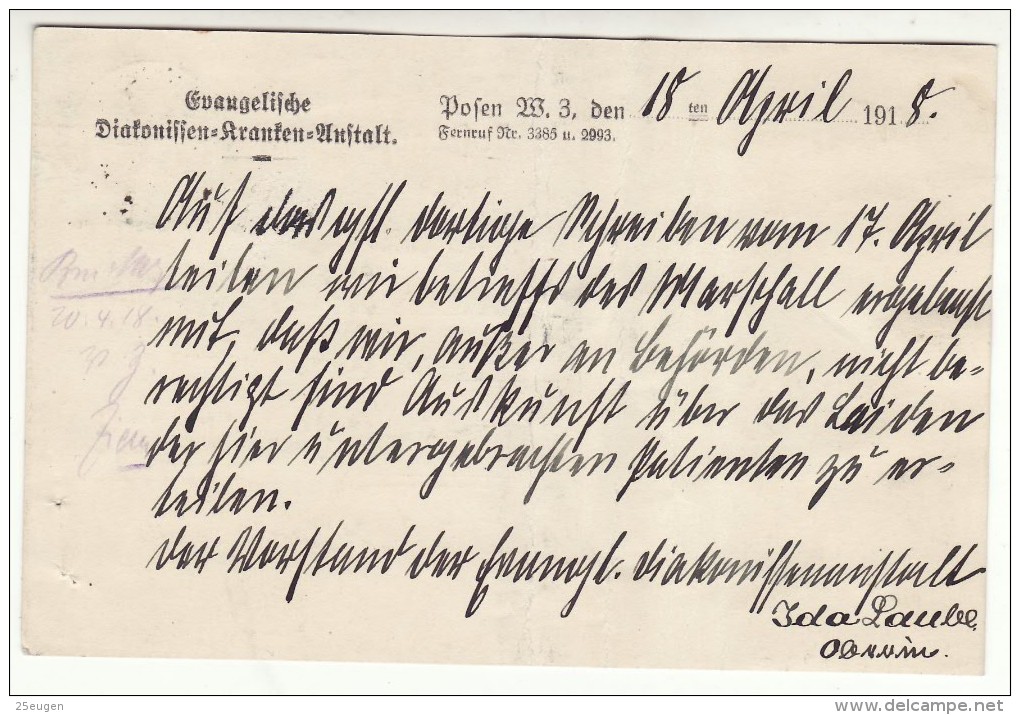 Evangelische
Diakonissen-Kranken-Anstalt.
Posen W. 3, den 18 ten April 1918.
Fernruf Nr. 3385 u. 2993.
Auf das gfl. dortige Schreiben vom 17. April
teilen wir betreffs des Marschall ergebenst
mit, daß wir, außer an Behörden, nicht be-
rechtigt sind Auskunft über das Leiden
der hier untergebrachten Patienten zu er-
teilen.
Der Vorstand der Evangl. Diakonissenanstalt
Ida Laube,
Oberin.
20.4.18.
25eugen
delcampe.net